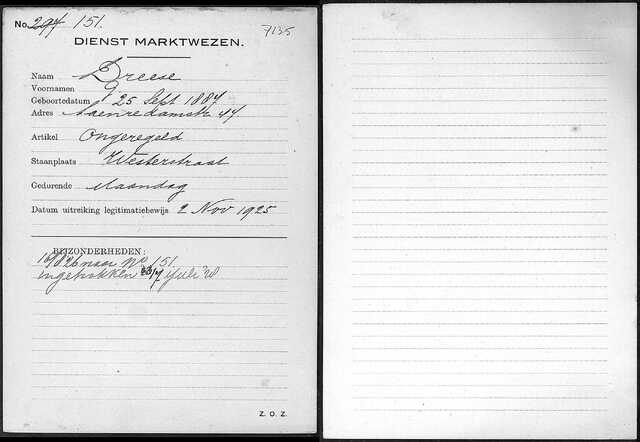 No. 294 151.
7135
DIENST MARKTWEZEN.
Naam Dreese
Voornamen
Geboortedatum 25 Sept 1887
Adres Saenredamstr 44
Artikel Ongeregeld
Staanplaats Westerstraat
Gedurende Maandag
Datum uitreiking legitimatiebewijs 2 Nov 1925
BIJZONDERHEDEN:
16/8 26 naar No 151
ingetrokken Juli
Z. O. Z.